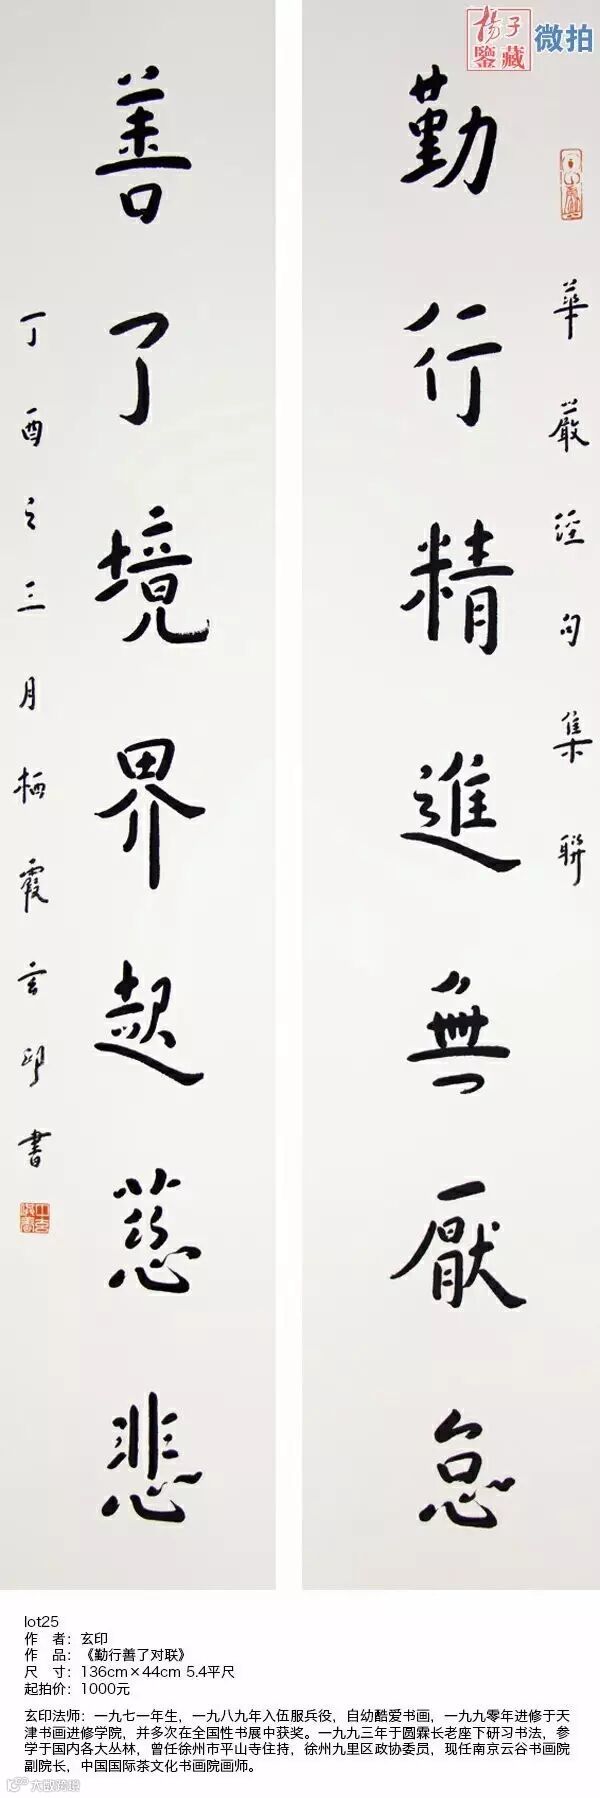 楊子
鑒藏
微拍
華嚴經句集聯
勤行精進無厭怠
善了境界起慈悲
丁酉之三月栖霞玄印書
lot25
作　者：玄印
作　品：《勤行善了对联》
尺　寸：136cm×44cm 5.4平尺
起拍价：1000元
玄印法师：一九七一年生，一九八九年入伍服兵役，自幼酷爱书画，一九九零年进修于天
津书画进修学院，并多次在全国性书展中获奖。一九九三年于圆霖长老座下研习书法，参
学于国内各大丛林，曾任徐州市平山寺住持，徐州九里区政协委员，现任南京云谷书画院
副院长，中国国际茶文化书画院画师。